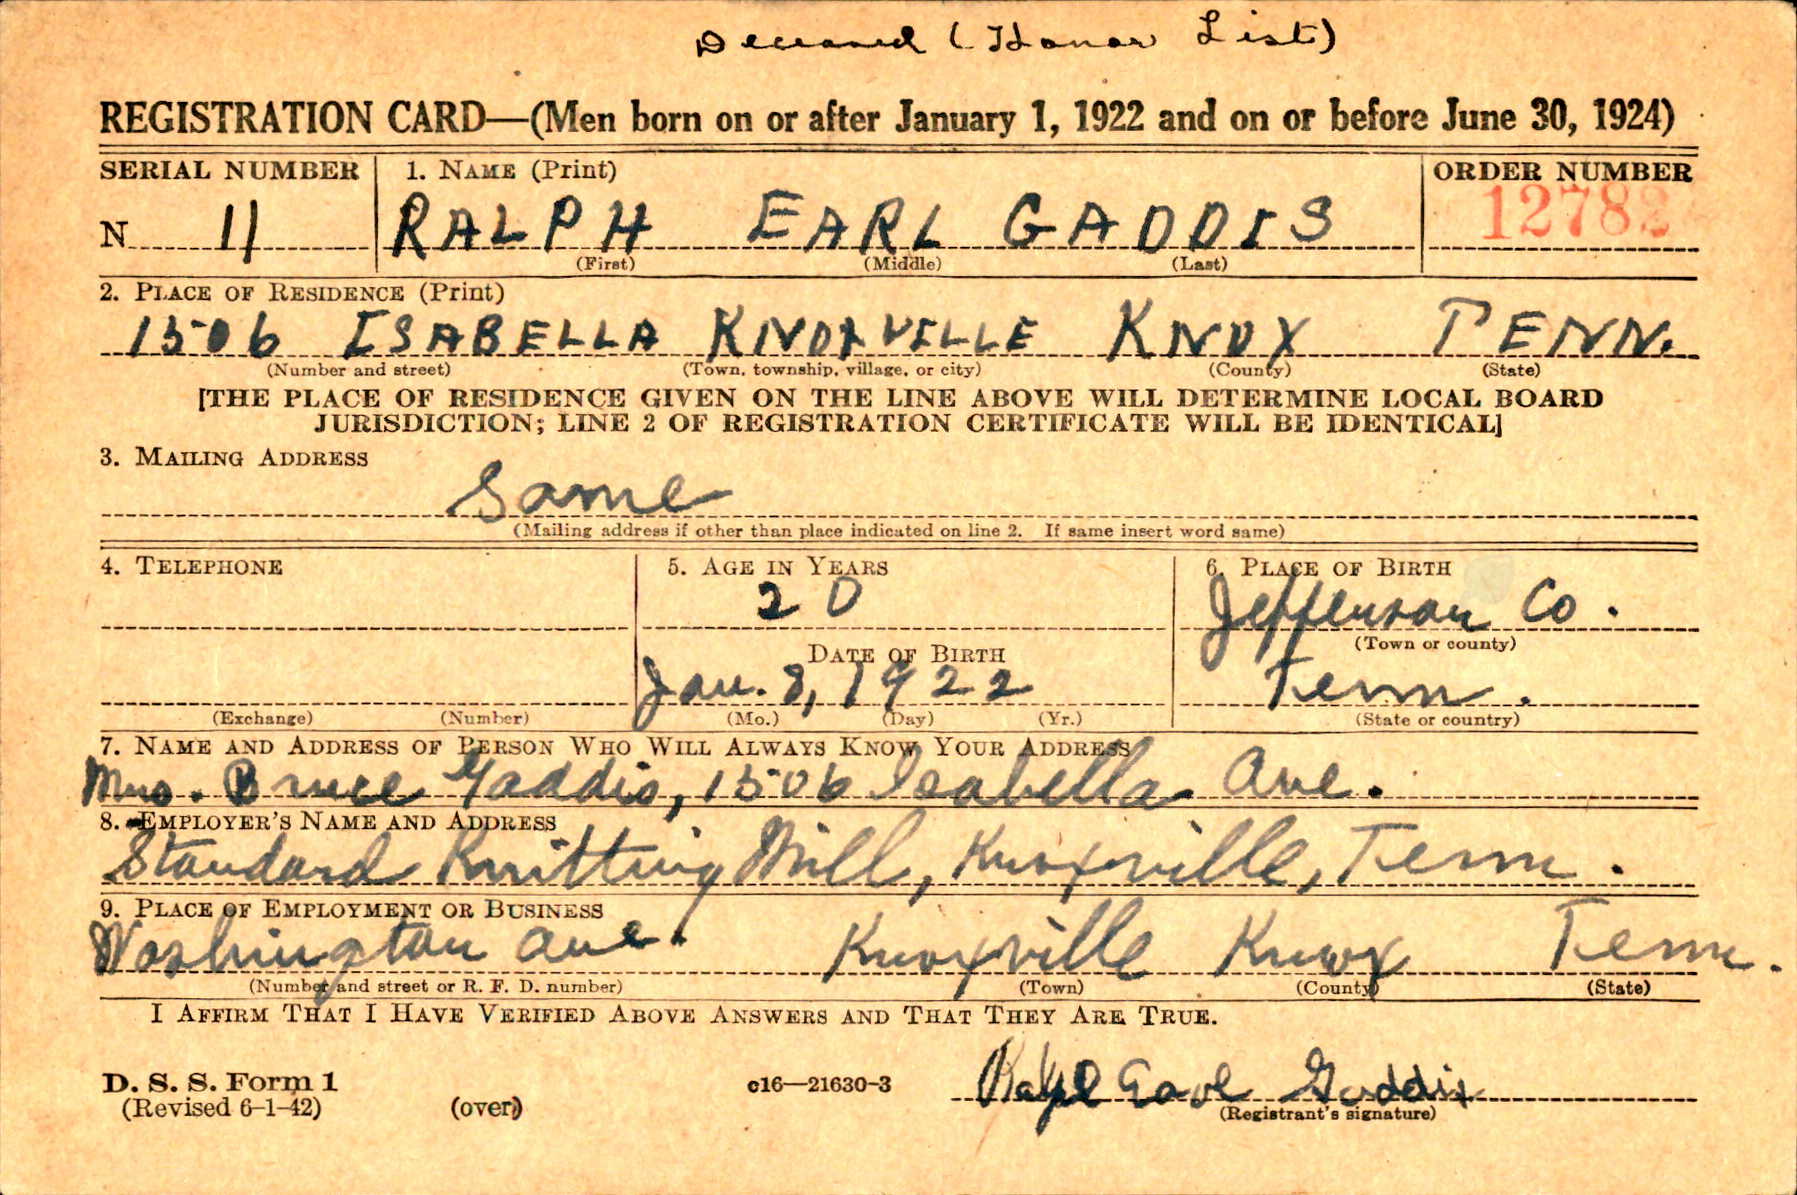 Deceased (Honor List)
REGISTRATION CARD—(Men born on or after January 1, 1922 and on or before June 30, 1924)
SERIAL NUMBER 1. NAME (Print) ORDER NUMBER
N 11 RALPH EARL GADDIS 12782
(First) (Middle) (Last)
2. PLACE OF RESIDENCE (Print)
1506 ISABELLA KNOXVILLE KNOX TENN.
(Number and street) (Town, township, village, or city) (County) (State)
[THE PLACE OF RESIDENCE GIVEN ON THE LINE ABOVE WILL DETERMINE LOCAL BOARD
JURISDICTION; LINE 2 OF REGISTRATION CERTIFICATE WILL BE IDENTICAL]
3. MAILING ADDRESS
Same
(Mailing address if other than place indicated on line 2. If same insert word same)
4. TELEPHONE 5. AGE IN YEARS 6. PLACE OF BIRTH
20 Jefferson Co.
(Town or county)
DATE OF BIRTH
Jan. 8, 1922 Tenn.
(Exchange) (Number) (Mo.) (Day) (Yr.) (State or country)
7. NAME AND ADDRESS OF PERSON WHO WILL ALWAYS KNOW YOUR ADDRESS
Mrs. Bruce Gaddis, 1506 Isabella Ave.
8. EMPLOYER'S NAME AND ADDRESS
Standard Knitting Mill, Knoxville, Tenn.
9. PLACE OF EMPLOYMENT OR BUSINESS
Washington Ave. Knoxville Knox Tenn.
(Number and street or R. F. D. number) (Town) (County) (State)
I AFFIRM THAT I HAVE VERIFIED ABOVE ANSWERS AND THAT THEY ARE TRUE.
D. S. S. Form 1
(Revised 6-1-42) (over) c16—21630-3 Ralph Earl Gaddis
(Registrant's signature)